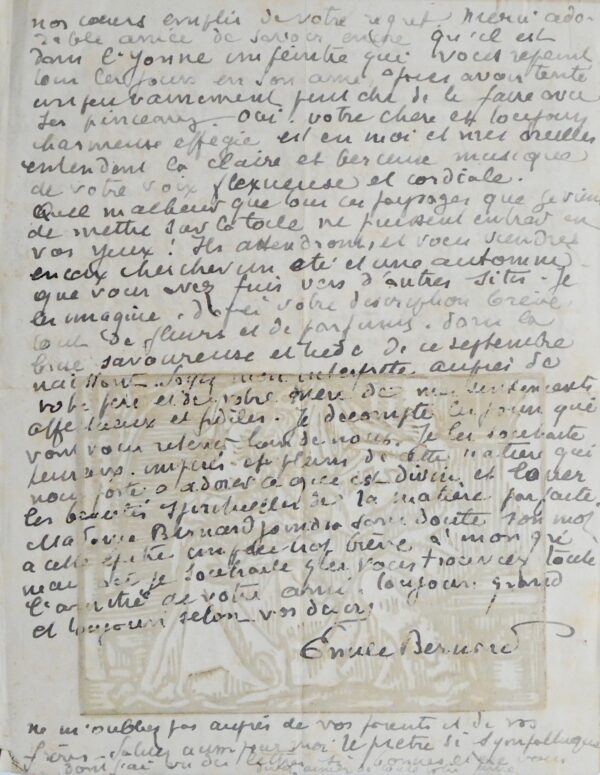 nos cœurs emplis de votre regret. Merci ado
rable amie de savoir encore qu'il est
dans l'Yonne un peintre qui vous repeint
tous les jours en son âme après avoir tenté
un peu vainement peut être de le faire avec
ses pinceaux. Oui, votre chère et toujours
charmeuse effegie est en moi et mes oreilles
entendent la claire et berceuse musique
de votre voix flexueuse et cordiale.
Quel malheur que tous ces paysages que je viens
de mettre sur la toile ne puissent entrer en
vos yeux! Ils attendront, et vous viendrez
en eux chercher un été et une automne
que vous avez fuis vers d'autres sites. Je
les imagine, d'après votre description brève
tout de fleurs et de parfums, dans la
brise savoureuse et tiède de ce septembre
naissant. Soyez mon interprète auprès de
votre père et de votre mère de mes sentiments
affectueux et fidèles. Je décompte les jours qui
vont vous retenir loin de nous. Je les souhaite
heureux, et pleins de cette matière qui
nous porte à adorer ce que est divin et louer
les beautés spirituelles de la matière parfaite.
Madame Bernard joindra sans doute son mot
à cette épitre un peu trop brève à mon gré
mais où je souhaite que vous trouviez toute
l'amitié de votre ami toujours grand
et toujours selon vos désirs
Emile Bernard
ne m'oubliez pas auprès de vos parents et de vos
frères. Saluez aussi pour moi le prêtre si sympathique
dont j'ai vu des lettres si bonnes et